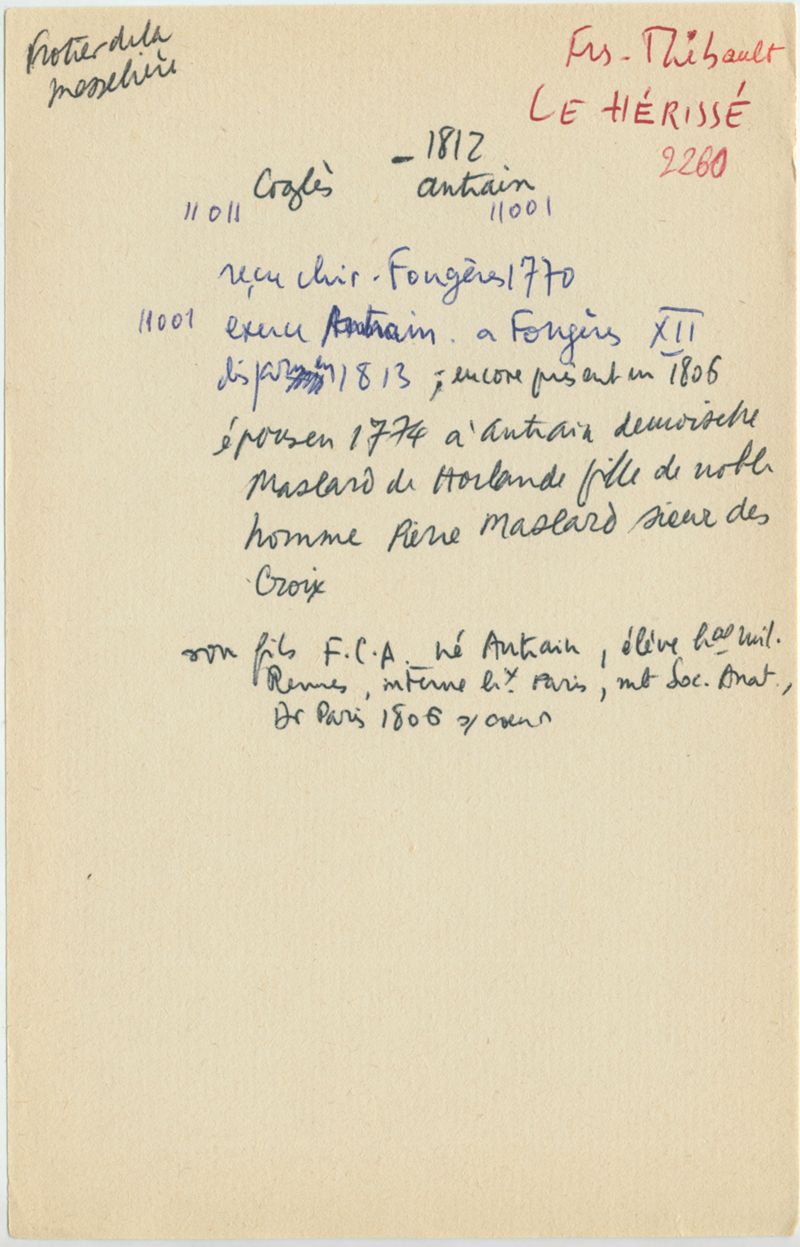 Frotier de la
Messelière
Frs-Thébault
LE HÉRISSÉ
2260
- 1812
Coglès antrain
11011 11001
reçu chir. Fougères 1770
11001 exerce Antrain. a Fougères XII
dispar en 1813 ; encore présent en 1806
épousen 1774 à Antrain demoiselle
Maslard de Horlande fille de noble
homme Pierre Maslard sieur des
Croix
son fils F.C.A. né Antrain, élève hal mil.
Rennes, interne hx Paris, mb Soc. Anat.,
Dr Paris 1806 s/ coeur